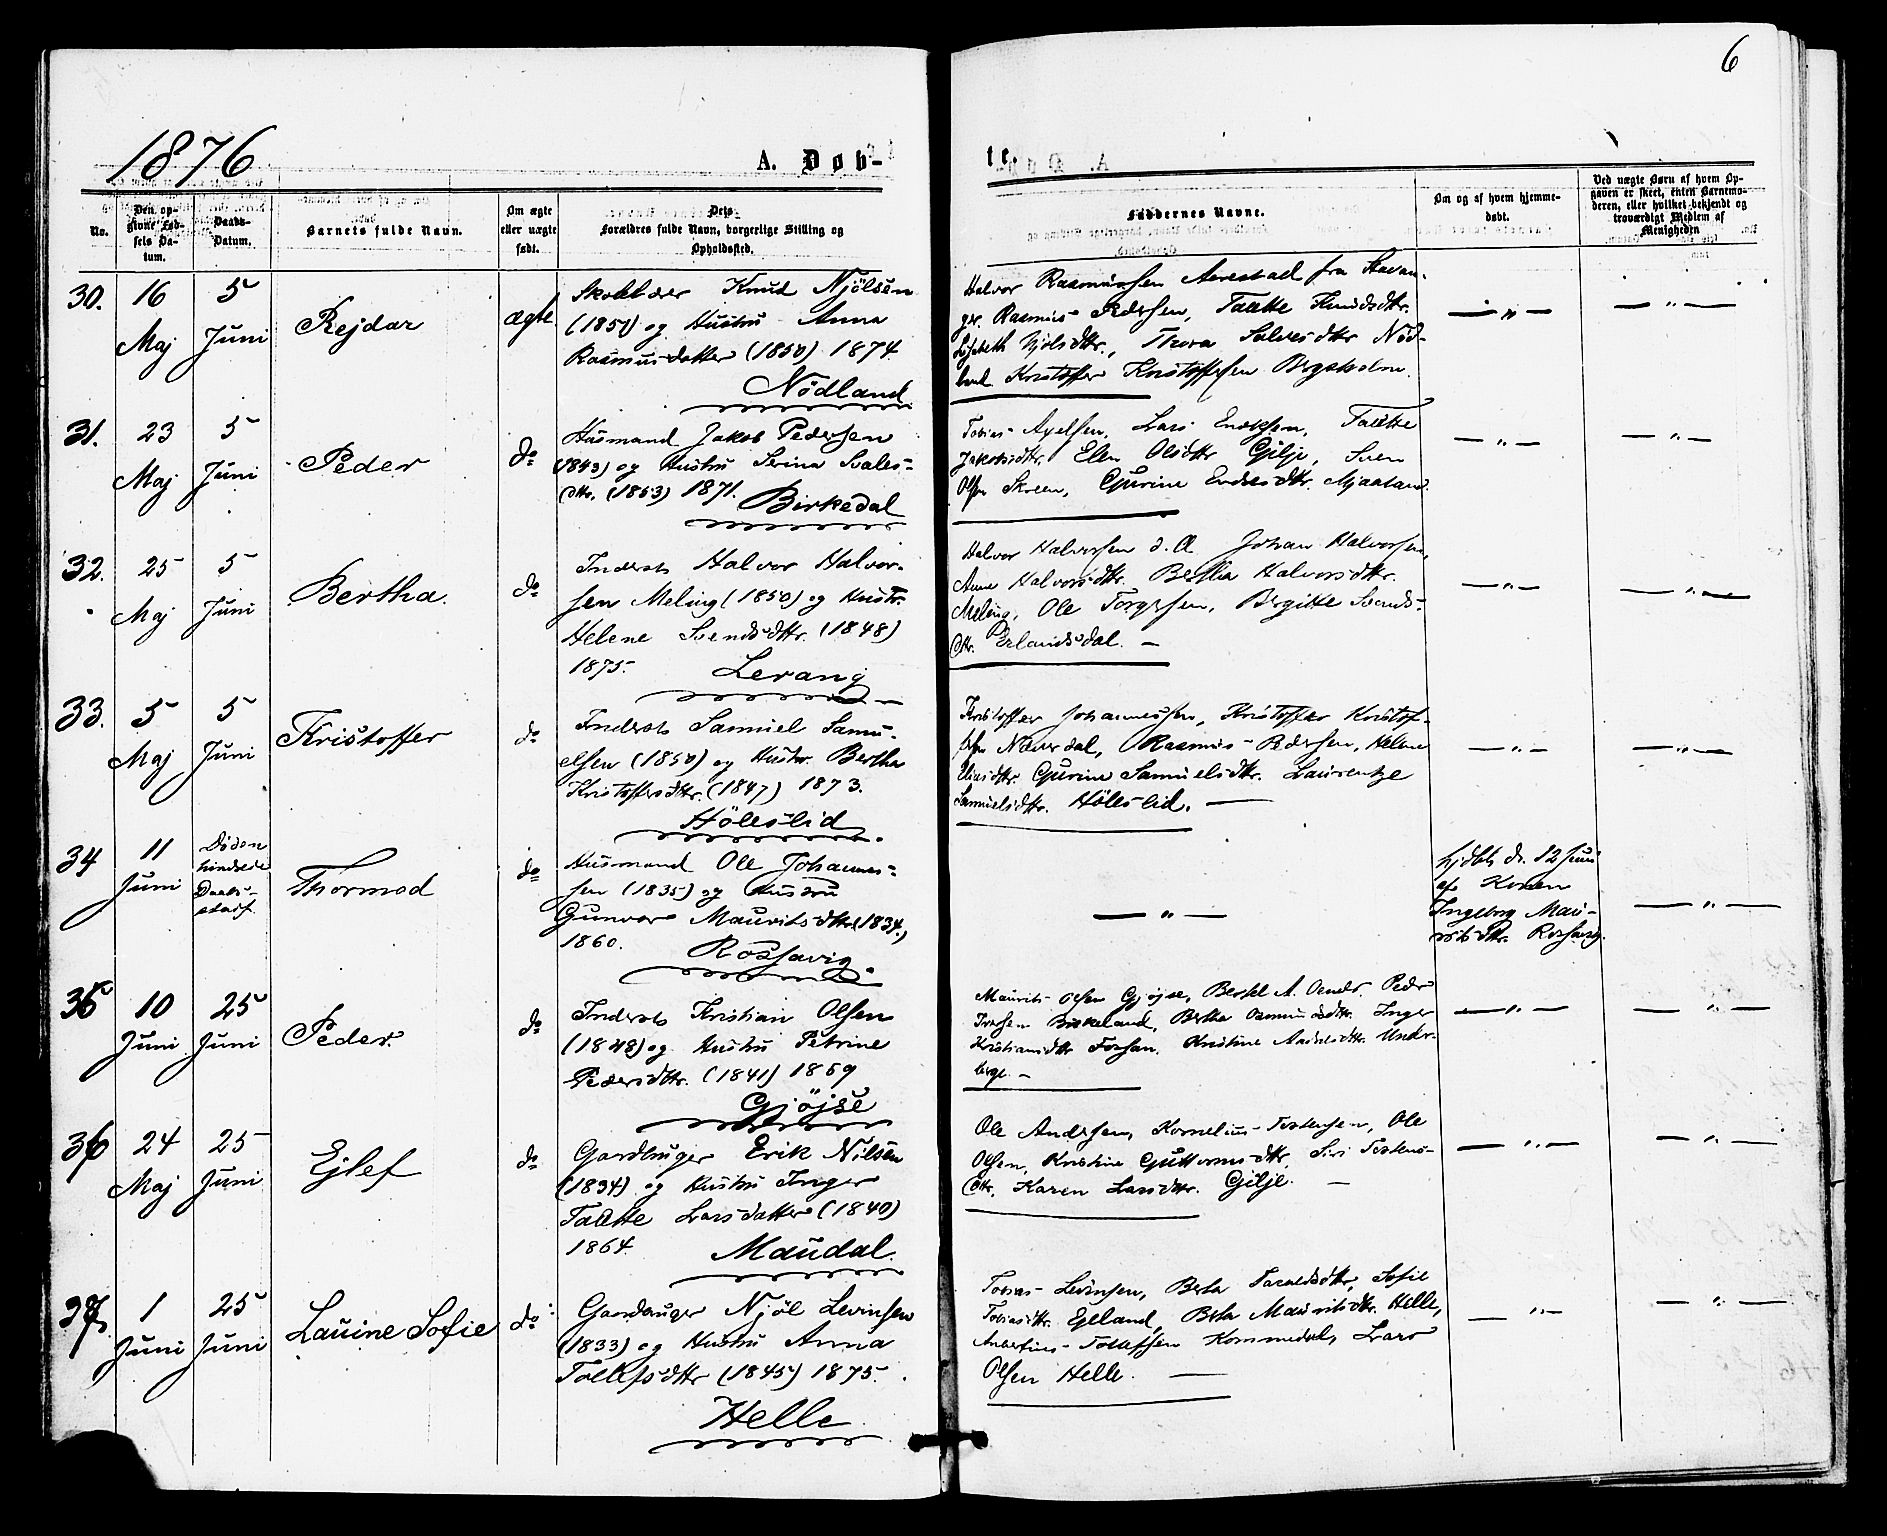 6
1876
A. Døb-
te.
No.
Den op-
givne Fød-
sels Da-
tum.
Daabs-
Datum.
Barnets fulde Navn.
Om ægte
eller uægte
født.
Dets
Forældres fulde Navn, borgerlige Stilling og
Opholdssted.
Faddernes Navne.
Om og af hvem hjemme-
døbt.
Ved uægte Børn af hvem Op-
gaven er skeet, enten Barnemo-
deren, eller hvilket bekjendt og
troværdigt Medlem af
Menigheden
30.
16
Maj
5
Juni
Rejdar
ægte
Knud Njölsen
og Hustru Anna
Rasmusdatter (1850) 1874
Nödland
Halvor Rasmussen fra Stavan-
ger. Rasmus Pedersen, Taatte Knudsdtr.
Lisbeth Njolsdtr., Thora Salvesdtr Nöd-
land Kristoffer Kristoffersen Bergsholm.
— " —
— " —
31.
23
Maj
5
Juni
Peder
do
Husmand Jakob Pedersen
(1843) og Hustru Serina Svales-
dtr. (1853) 1871.
Birkedal
Tobias Axelsen, Lars Endresen, Taatte
Jakobsdtr. Elen Olsdtr Gilje, Sven
Olsen Skreen, Gurine Endresdtr. Mjaaland.
— " —
— " —
32.
25
Maj
5
Juni
Bertha.
do
Inderst Halvor Halvor-
sen Meling (1850) og Hustr.
Helene Svendsdtr. (1848)
1875.
Lerang
Halvor Halvorsen d. Æ Johan Halvorsen,
Anne Halvorsdtr. Bertha Halvorsdtr.
Meling, Ole Torgersen, Birgitte Svends-
dtr. Erlandsdal. —
— " —
— " —
33.
5
Maj
5
Juni
Kristoffer
do
Inderst Samuel Samu-
elsen (1850) og Hustr. Bertha
Kristoffersdtr. (1847) 1873.
Höleslid
Kristoffer Johannessen, Kristoffer Kristof-
fersen Næverdal, Rasmus Pedersen, Helene
Eliasdtr. Gurine Samuelsdtr. Laurentze
Samuelsdtr. Höleslid. —
— " —
— " —
34
11
Juni
Döden
hindrede
Daabs-
stadf.
Thormod
do
Husmand Ole Johannes-
sen (1835) og Hustru
Gunvor Mauritsdtr (1834.)
1860.
Rossavig.
— " —
hjdbt d. 12 Juni
af Konen
Ingeborg Mau-
ritsdtr. Rossavig.
— " —
35
10
Juni
25
Juni
Peder.
do
Inderst Kristian Olsen
(1848) og Hustru Petrine
Pedersdtr. (1841) 1869
Gjöjse
Maurits Olsen Gjöjse, Bertel A. Peder
Iversen Birkeland, Bertha Inger
Kristiansdtr Forsan. Kristine Under-
berge. —
— " —
— " —
36
24
Maj
25
Juni
Ejlef
do
Gardbruger Erik Nilsen
(1834) og Hustru Inger
Taatte Larsdatter (1840)
1864.
Maudal.
Ole Andersen, Kornelius Torkersen, Ole
Olsen, Kristine Guttormsdtr. Siri
dtr. Karen Larsdtr. Gilje. —
— " —
— " —
37.
1
Juni
25
Juni
Lauine Sofie
do
Gardbruger Njöl Levinsen
(1833) og Hustru Anna
Tollefsdtr (1845) 1875.
Helle
Tobias Levinsen, Berta Sofie
Tobiasdtr. Eieland, Berta Mauritsdtr. Helle,
Tollefsen Kommedal, Lars
Olsen Helle. —
— " —
— " —